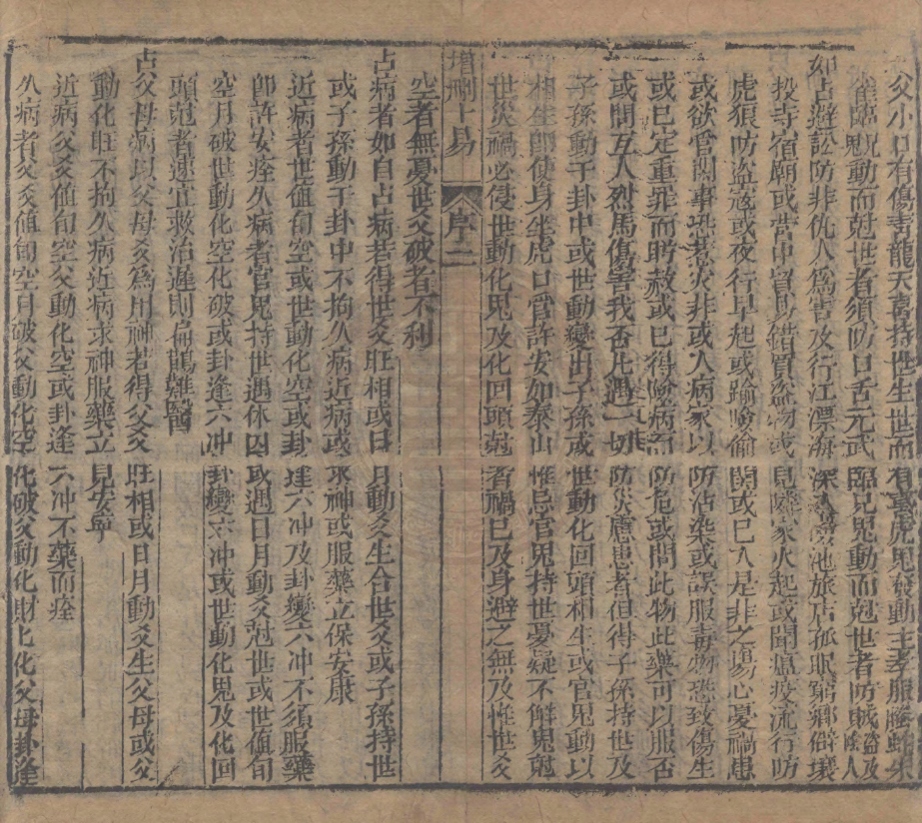 父小口有傷青龍天喜持世生世而有喜虎鬼發動主孝服螣蛇朱
雀臨鬼動而尅世者須防口舌元武臨兄鬼動而尅世者防賊盜及陰人
如占避訟防非仇人爲害及行江漂海深入夢池旅店孤眠窮鄉僻壤
投寺宿廟或營中貿易錯買盜物或見隣家火起或聞瘟疫流行防
虎狼防盜寇或夜行早起或踰險偷關或已入是非之塲心憂禍患
或欲管閑事恐惹火非或入病家以防沾染或誤服毒物恐致傷生
或已定重罪而盻赦或已得險病而防危或問此物此藥可以服否
或問互人烈馬傷害我否凡遇一切防災慮患者但得子孫持世及
子孫動于卦中或世動變出子孫或世動化回頭相生或官鬼動以
相生卽使身坐虎口管許安如泰山惟忌官鬼持世憂疑不解鬼尅
世災禍必侵世動化鬼及化回頭尅者禍已及身避之無及惟世爻
增刪卜易
序二
空者無憂世爻破者不利
占病者如自占病若得世爻旺相或日月動爻生合世爻或子孫持世
或子孫動于卦中不拘久病近病或求神或服藥立保安康
近病者世值旬空或世動化空或卦逢六冲及卦變六冲不須服藥
卽許安痊久病者官鬼持世遇休囚或遇日月動爻尅世或世值旬
空月破世動化空化破或卦逢六冲卦變六冲或世動化鬼及化回
頭尅者速宜救治遲則扁鵲難醫
占父母病以父母爻爲用神若得父爻旺相或日月動爻生父母或父
動化旺不拘久病近病求神服藥立見安寧
近病父爻值旬空父動化空或卦逢六冲不藥而痊
久病者父爻值旬空月破父動化空化破父動化財化父母卦逢